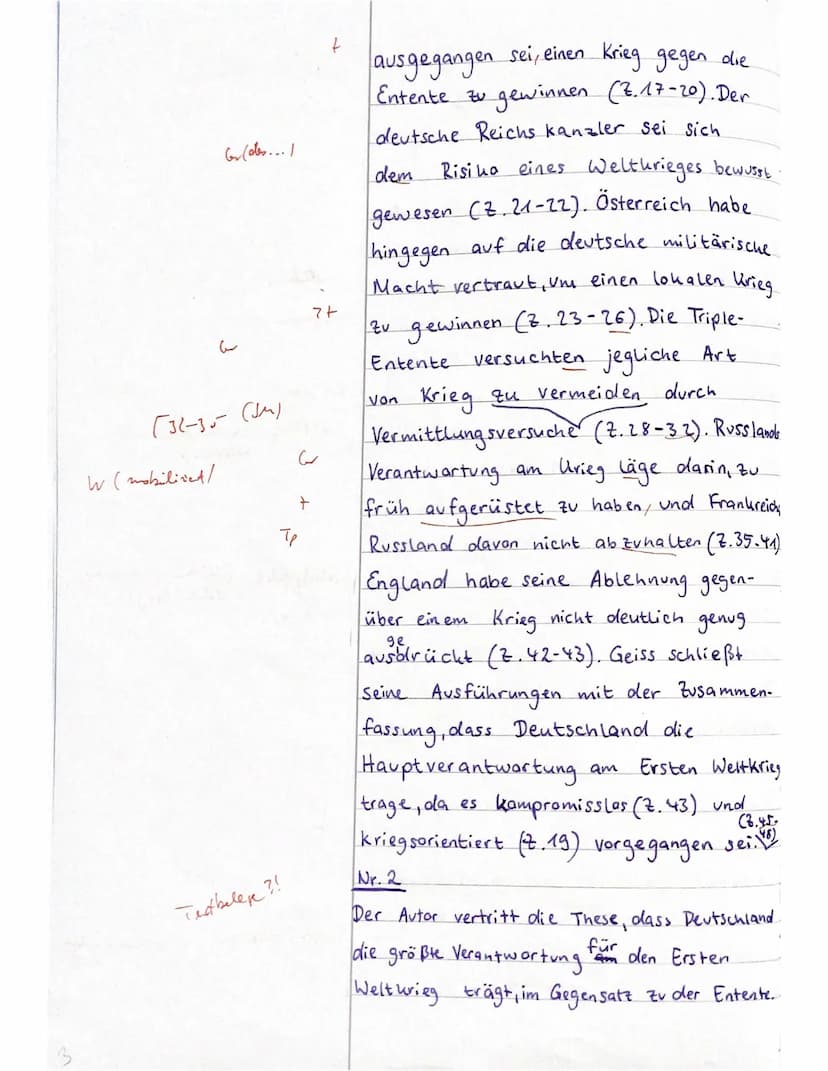 t
ausgegangen sei, einen Krieg gegen die
Entente zu gewinnen (Z.17-20). Der
deutsche Reichskanzler sei sich
Gr (des...)
dem Risiko eines Weltkrieges bewusst
gewesen (Z.21-22). Österreich habe
hingegen auf die deutsche militärische
Macht vertraut, um einen lokalen Krieg
?t
zu gewinnen (Z.23-26). Die Triple-
Gr
Entente versuchten jegliche Art
von Krieg zu vermeiden durch
32-35
Vermittlungsversuche (Z.28-32). Russlands
Gr
W (mobilisiert)
Verantwortung am Krieg läge darin, zu
t
früh aufgerüstet zu haben, und Frankreich,
Russland davon nicht abzuhalten (Z.35-41)
England habe seine Ablehnung gegen-
über einem Krieg nicht deutlich genug
ge
ausdrückt (Z.42-43). Geiss schließt
seine Ausführungen mit der Zusammen-
fassung, dass Deutschland die
Hauptverantwortung am Ersten Weltkrieg
trage, da es kompromisslos (Z.43) und
(Z.45-48)
kriegsorientiert (Z.19) vorgegangen sei.
Nr. 2
Textbelege?!
Der Autor vertritt die These, dass Deutschland
die größte Verantwortung für den Ersten
Weltkrieg trägt, im Gegensatz zu der Entente.
3